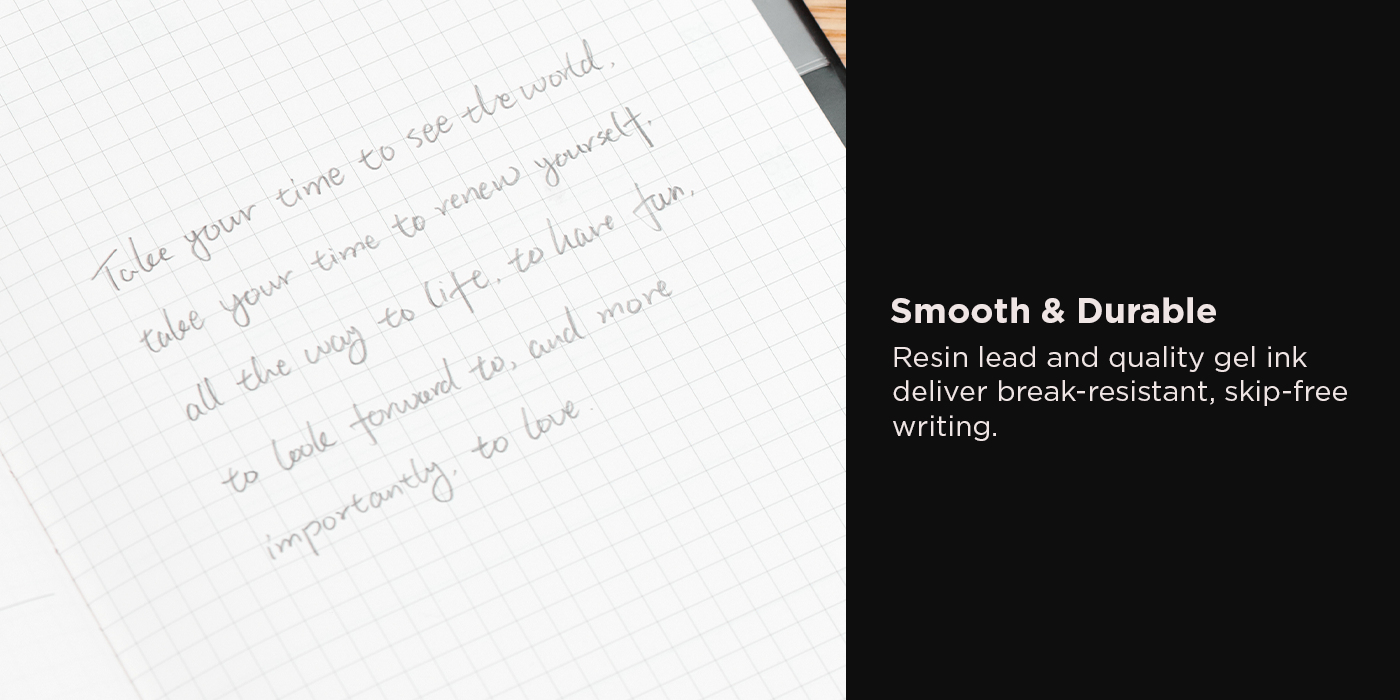 Take your time to see the world,
take your time to renew yourself,
all the way to life, to have fun,
to look forward to, and more
importantly, to love.
Smooth & Durable
Resin lead and quality gel ink
deliver break-resistant, skip-free
writing.